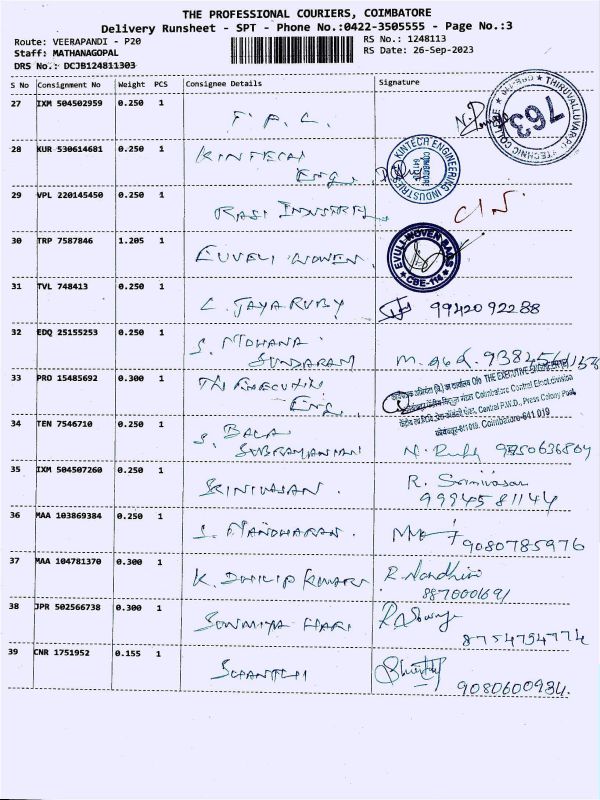 THE PROFESSIONAL COURIERS, COIMBATORE
Delivery Runsheet - SPT - Phone No.:0422-3505555 - Page No.:3
Route: VEERAPANDI - P20 RS No.: 1248113
Staff: MATHANAGOPAL RS Date: 26-Sep-2023
DRS No.: DCJB124811303
S No Consignment No Weight PCS Consignee Details Signature
27 IXM 504502959 0.250 1
THIRUVALLUVAR
763
28 KUR 530614681 0.250 1 KINTECH
Eng.
KINTECH ENGINEERING INDUSTRIES
COIMBATORE
29 VPL 220145450 0.250 1 RASI INDUSTRY
30 TRP 7587846 1.205 1 EUVELI WOVEN
EVULI-WOVEN BAGS
CBE-114
31 TVL 748413 0.250 1 L. JAYARUBY 9942092288
32 EDQ 25155253 0.250 1 S. MOHANA
SUNDARAM
33 PRO 15485692 0.300 1 TN EXECUTIVE
Eng.
O/o THE EXECUTIVE ENGINEER
Coimbatore Central Elect.division
Central P.W.D., Press Colony Post
Coimbatore-641 019
34 TEN 7546710 0.250 1 S. BALA
SUBRAMANIAN
35 IXM 504507260 0.250 1 SRINIVASAN. R. Srinivasan
9994581144
36 MAA 103869384 0.250 1 S. MANOHARAN. 9080785976
37 MAA 104781370 0.300 1 K. DHILIP KUMAR R. Nandhini
8870001691
38 JPR 502566738 0.300 1 SOWMIYA HARI
8754754774
39 CNR 1751952 0.155 1 SHANTHI
9080600934.